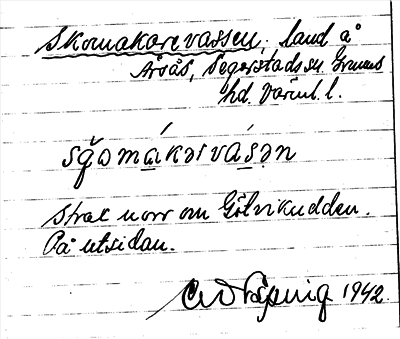 Skomakarevassen, land å
Årsås, Segerstads sn Grums
hd. Värml. l.
sg̊omákərvásən
Strax norr om Götvikudden.
På utsidan.
1942.